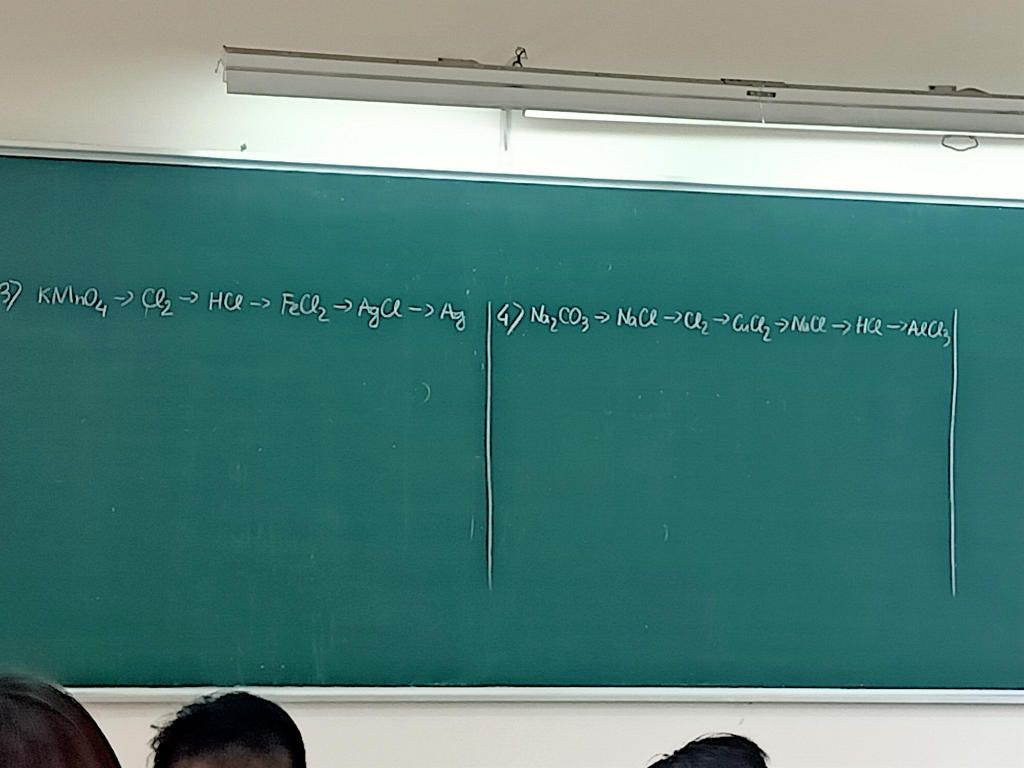 3) KMnO₄ → Cl₂ → HCl → FeCl₂ → AgCl → Ag
4) Na₂CO₃ → NaCl → Cl₂ → CuCl₂ → NaCl → HCl → AlCl₃